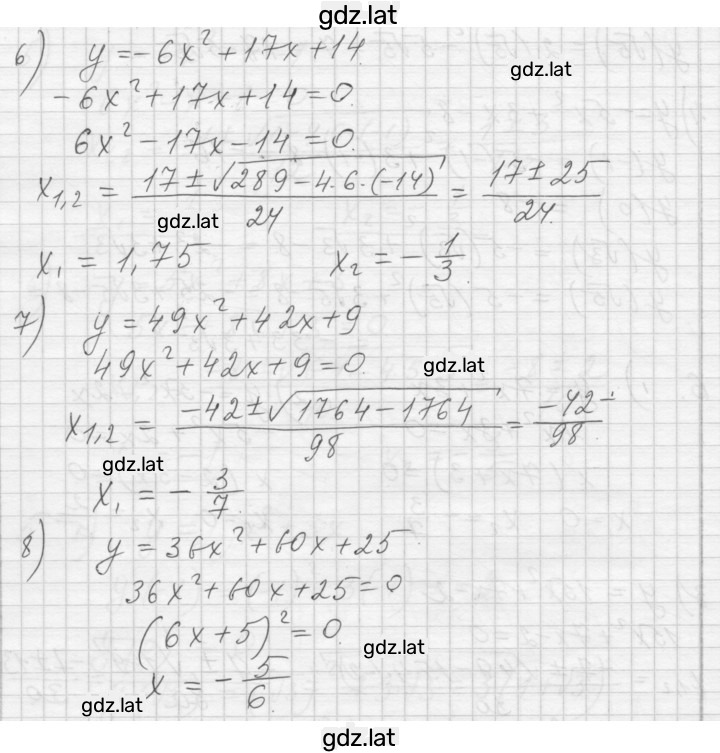 gdz.lat
6) y = -6x² + 17x + 14
gdz.lat
-6x² + 17x + 14 = 0.
6x² - 17x - 14 = 0.
x₁,₂ = (17 ± √(289 - 4·6·(-14)))/24 = (17 ± 25)/24.
gdz.lat
x₁ = 1,75 x₂ = -1/3.
7) y = 49x² + 42x + 9
49x² + 42x + 9 = 0.
gdz.lat
x₁,₂ = (-42 ± √(1764 - 1764))/98 = (-42 ±)/98.
gdz.lat
x₁ = -3/7.
8) y = 36x² + 60x + 25
36x² + 60x + 25 = 0
(6x + 5)² = 0.
gdz.lat
x = -5/6.
gdz.lat
gdz.lat